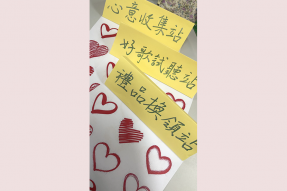 心意收集站
好歌試聽站
禮品換領站